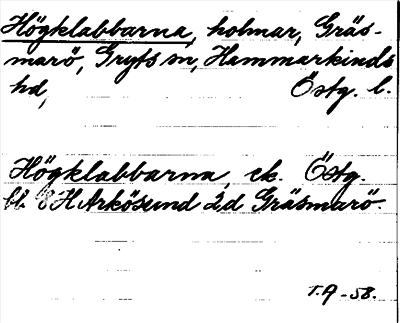 Högklabbarna, holmar, Gräs-
marö, Gryts sn, Hammarkinds
hd, Östg. l.
Högklabbarna, ek. Östg.
bl 8H Arkösund 2d Gräsmarö.
T.A -58.